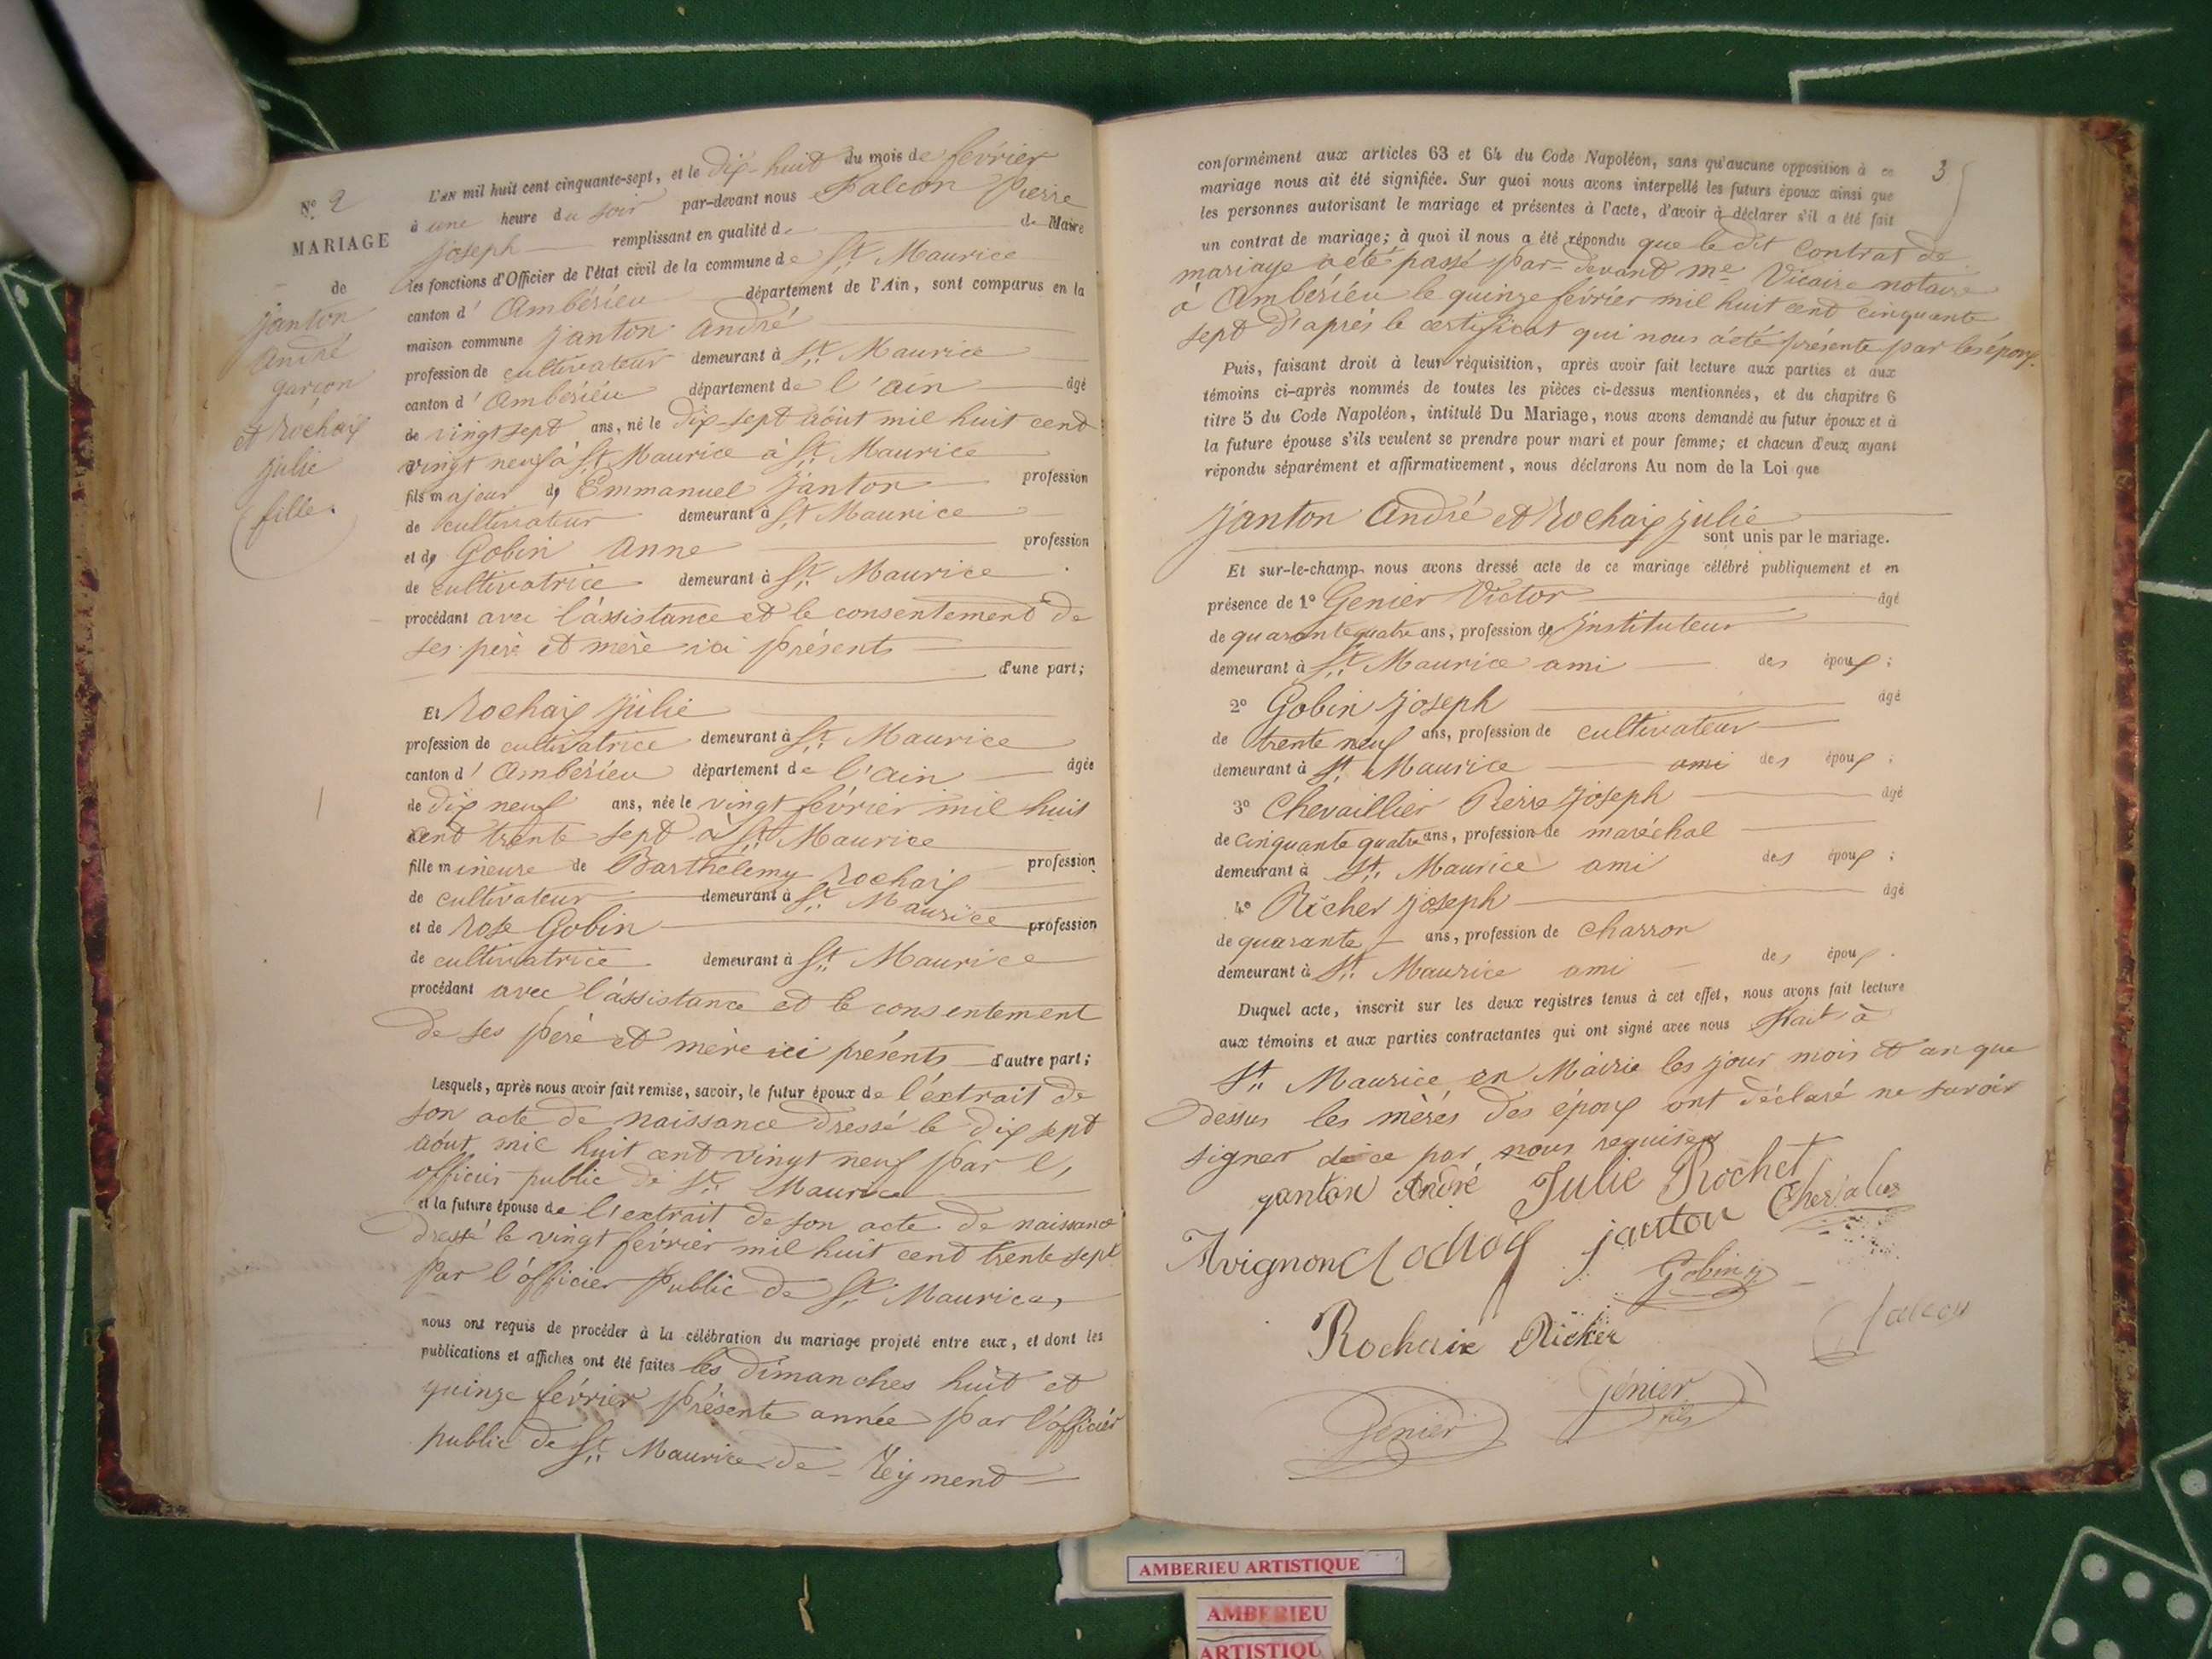 N° 2
MARIAGE
de
janton
André
garçon
et Rochaix
julie
fille.
L'AN mil huit cent cinquante-sept, et le dix-huit du mois de février
à une heure du soir par-devant nous Falcon Pierre
joseph remplissant en qualité de de Maire
les fonctions d'Officier de l'état civil de la commune de St Maurice
canton d'Ambérieu département de l'Ain, sont comparus en la
maison commune janton André
profession de cultivateur demeurant à St Maurice
canton d'Ambérieu département de l'ain âgé
de vingt sept ans, né le dix-sept août mil huit cent
vingt neuf à St Maurice à St Maurice
fils majeur de Emmanuel janton profession
de cultivateur demeurant à St Maurice
et de Gobin Anne profession
de cultivatrice demeurant à St Maurice
procédant avec l'assistance et le consentement de
ses père et mère ici présents
d'une part;
Et Rochaix julie
profession de cultivatrice demeurant à St Maurice
canton d'Ambérieu département de l'ain âgée
de dix neuf ans, née le vingt février mil huit
cent trente sept à St Maurice
fille mineure de Barthélemy Rochaix profession
de cultivateur demeurant à St Maurice
et de Rose Gobin profession
de cultivatrice demeurant à St Maurice
procédant avec l'assistance et le consentement
de ses père et mère ici présents d'autre part;
Lesquels, après nous avoir fait remise, savoir, le futur époux de l'extrait de
son acte de naissance dressé le dix sept
août mil huit cent vingt neuf par l,
officier public de St Maurice
et la future épouse de l'extrait de son acte de naissance
dressé le vingt février mil huit cent trente sept
Par l'officier Public de St Maurice,
nous ont requis de procéder à la célébration du mariage projeté entre eux, et dont les
publications et affiches ont été faites les dimanches huit et
quinze février présente année par l'officier
public de St Maurice de Reymend
3
conformément aux articles 63 et 64 du Code Napoléon, sans qu'aucune opposition à ce
mariage nous ait été signifiée. Sur quoi nous avons interpellé les futurs époux ainsi que
les personnes autorisant le mariage et présentes à l'acte, d'avoir à déclarer s'il a été fait
un contrat de mariage; à quoi il nous a été répondu que le dit contrat de
mariage a été passé par-devant me Vicaire notaire
à Ambérieu le quinze février mil huit cent cinquante
sept d'après le certificat qui nous a été présente par les époux.
Puis, faisant droit à leur réquisition, après avoir fait lecture aux parties et aux
témoins ci-après nommés de toutes les pièces ci-dessus mentionnées, et du chapitre 6
titre 5 du Code Napoléon, intitulé Du Mariage, nous avons demandé au futur époux et à
la future épouse s'ils veulent se prendre pour mari et pour femme; et chacun d'eux ayant
répondu séparément et affirmativement, nous déclarons Au nom de la Loi que
janton André et Rochaix julie
sont unis par le mariage.
Et sur-le-champ nous avons dressé acte de ce mariage célébré publiquement et en
présence de 1° Genier Victor âgé
de quarante quatre ans, profession de instituteur
demeurant à St Maurice ami des époux;
2° Gobin joseph âgé
de trente neuf ans, profession de cultivateur
demeurant à St Maurice ami des époux;
3° Chevaillier Pierre joseph âgé
de cinquante quatre ans, profession de maréchal
demeurant à St Maurice ami des époux;
4° Richer joseph âgé
de quarante ans, profession de charron
demeurant à St Maurice ami des époux.
Duquel acte, inscrit sur les deux registres tenus à cet effet, nous avons fait lecture
aux témoins et aux parties contractantes qui ont signé avec nous Fait à
St Maurice en Mairie les jour mois et an que
dessus les mères des époux ont déclaré ne savoir
signer de ce par nous requises
ganton André Julie Rochet
Avignon janton Chevalier
Gobin j
Rochaix Richer falcon
Génier fils
Genier
AMBERIEU ARTISTIQUE
AMBERIEU
ARTISTIQU